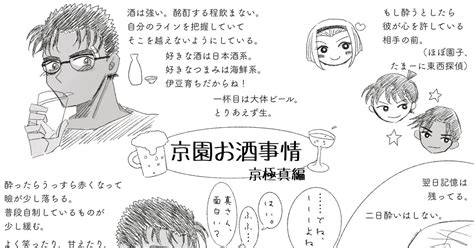 酒は強い。酩酊する程飲まない。
自分のラインを把握していて
そこを越えないようにしている。
好きな酒は日本酒系。
好きなつまみは海鮮系。
伊豆育ちだからね！
一杯目は大体ビール。
とりあえず生。
もし酔うとしたら
彼が心を許している
相手の前。
（ほぼ園子、
たまーに東西探偵）
京園お酒事情
京極真編
酔ったらうっすら赤くなって
瞼が少し落ちる。
普段自制しているものが
少し緩む。
よく笑ったり、甘えたり、
……でね、
ーーーでーー
ーーよね
はい。
ふふ…
真さん、
面白い？
翌日記憶は
残ってる。
二日酔いはしない。